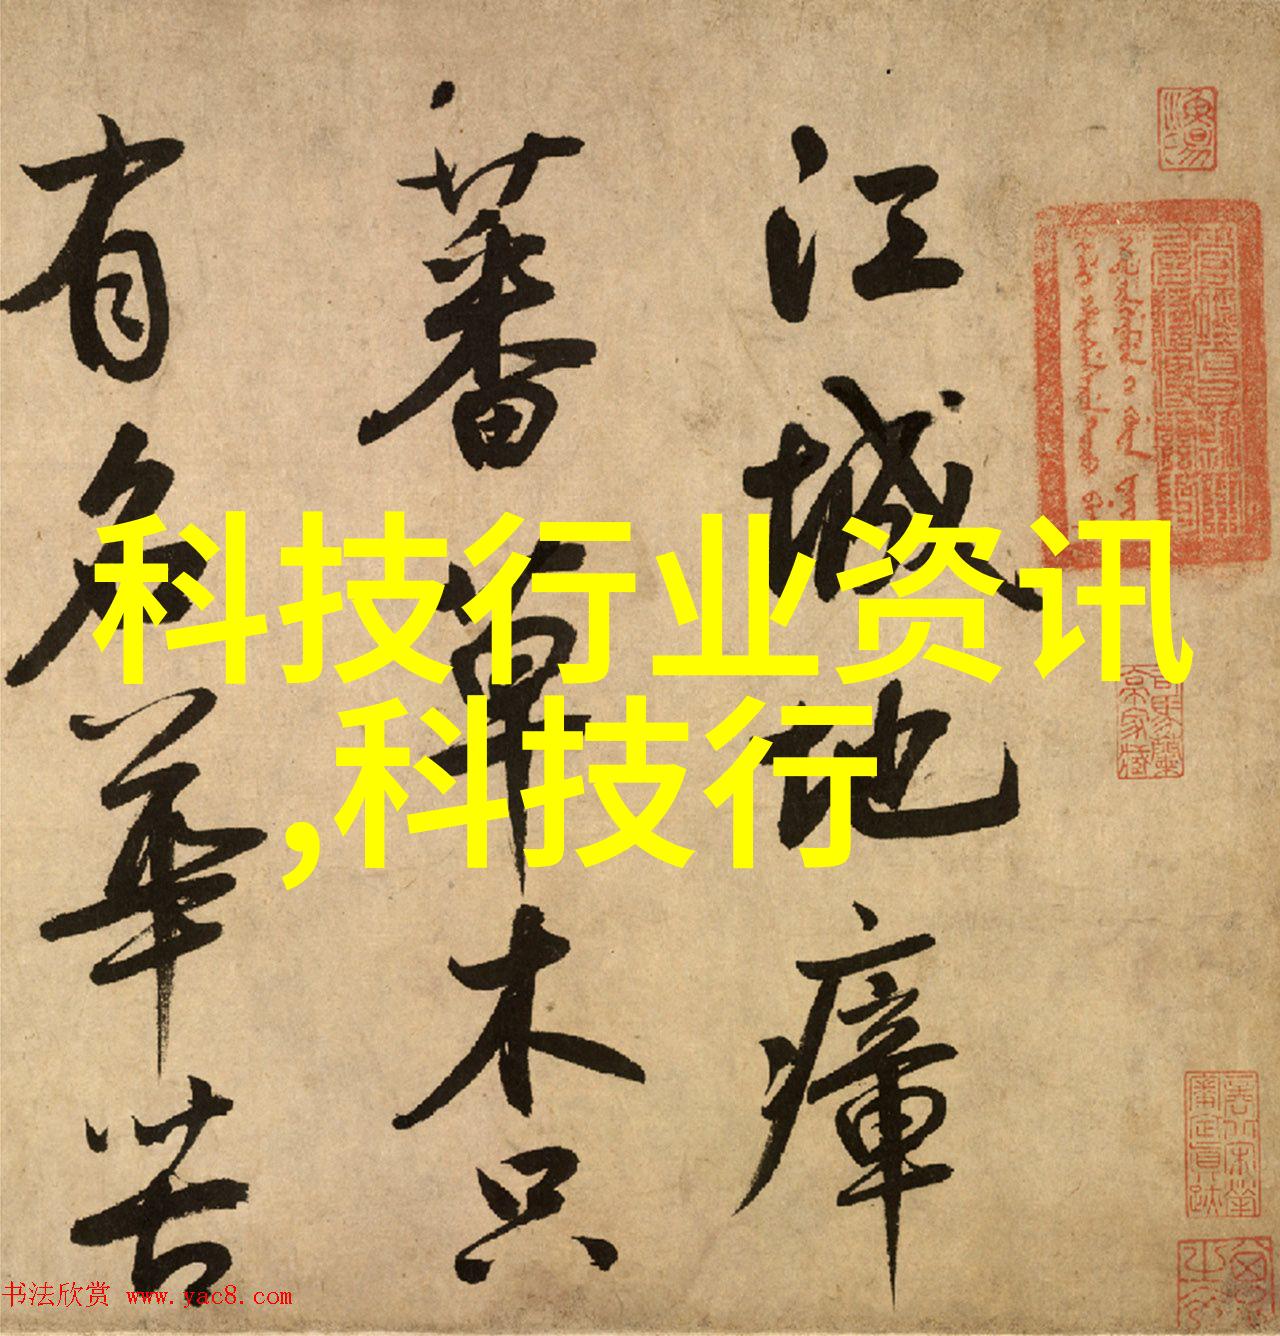 江城地瘴
蕃草木只
有名華苦
科技行业资讯
,科技行
书法欣赏 www.yac8.com